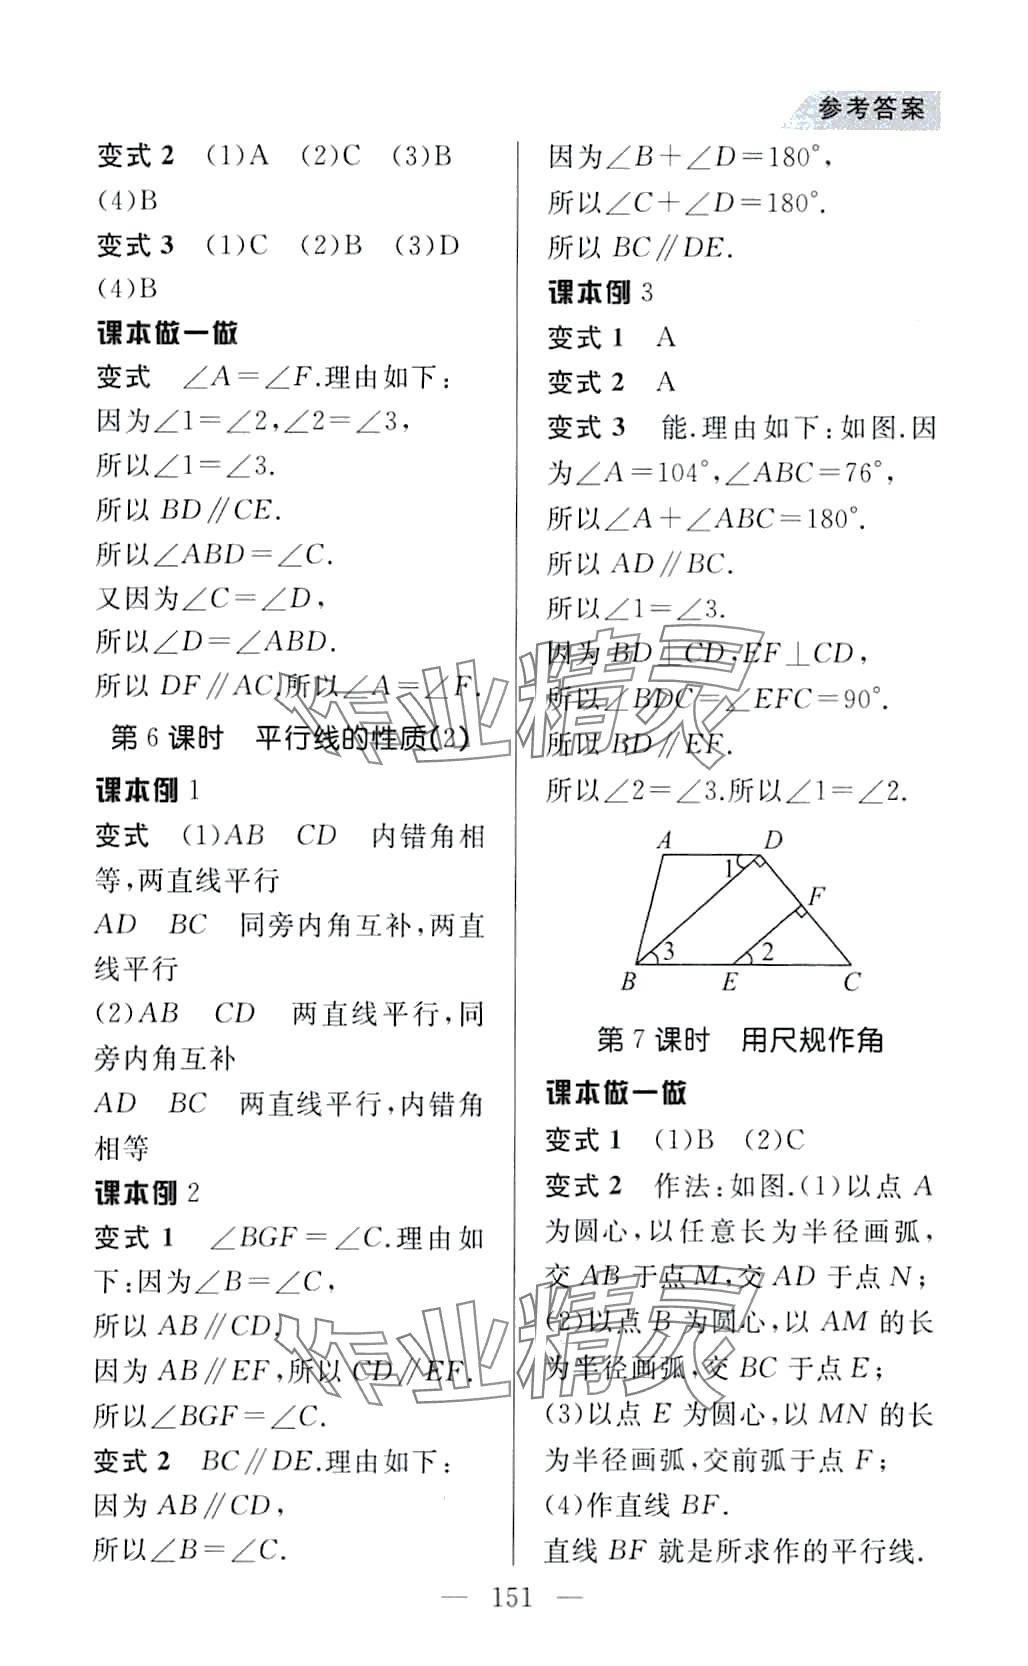 参考答案
变式 2 (1)A (2)C (3)B
(4)B
变式 3 (1)C (2)B (3)D
(4)B
课本做一做
变式 ∠A=∠F.理由如下:
因为∠1=∠2,∠2=∠3,
所以∠1=∠3.
所以 BD∥CE.
所以∠ABD=∠C.
又因为∠C=∠D,
所以∠D=∠ABD.
所以 DF∥AC,所以∠A=∠F.
第 6 课时 平行线的性质(2)
课本例 1
变式 (1)AB CD 内错角相
等,两直线平行
AD BC 同旁内角互补,两直
线平行
(2)AB CD 两直线平行,同
旁内角互补
AD BC 两直线平行,内错角
相等
课本例 2
变式 1 ∠BGF=∠C.理由如
下:因为∠B=∠C,
所以 AB∥CD,
因为 AB∥EF,所以 CD∥EF.
所以∠BGF=∠C.
变式 2 BC∥DE.理由如下:
因为 AB∥CD,
所以∠B=∠C.
因为∠B+∠D=180°,
所以∠C+∠D=180°.
所以 BC∥DE.
课本例 3
变式 1 A
变式 2 A
变式 3 能.理由如下:如图.因
为∠A=104°,∠ABC=76°,
所以∠A+∠ABC=180°.
所以 AD∥BC.
所以∠1=∠3.
因为 BD⊥CD,EF⊥CD,
所以∠BDC=∠EFC=90°.
所以 BD∥EF.
所以∠2=∠3.所以∠1=∠2.
A D
1
F
3 2
B E C
第 7 课时 用尺规作角
课本做一做
变式 1 (1)B (2)C
变式 2 作法:如图.(1)以点 A
为圆心,以任意长为半径画弧,
交 AB 于点 M,交 AD 于点 N;
(2)以点 B 为圆心,以 AM 的长
为半径画弧,交 BC 于点 E;
(3)以点 E 为圆心,以 MN 的长
为半径画弧,交前弧于点 F;
(4)作直线 BF.
直线 BF 就是所求作的平行线.
— 151 —
作业精灵
作业精灵